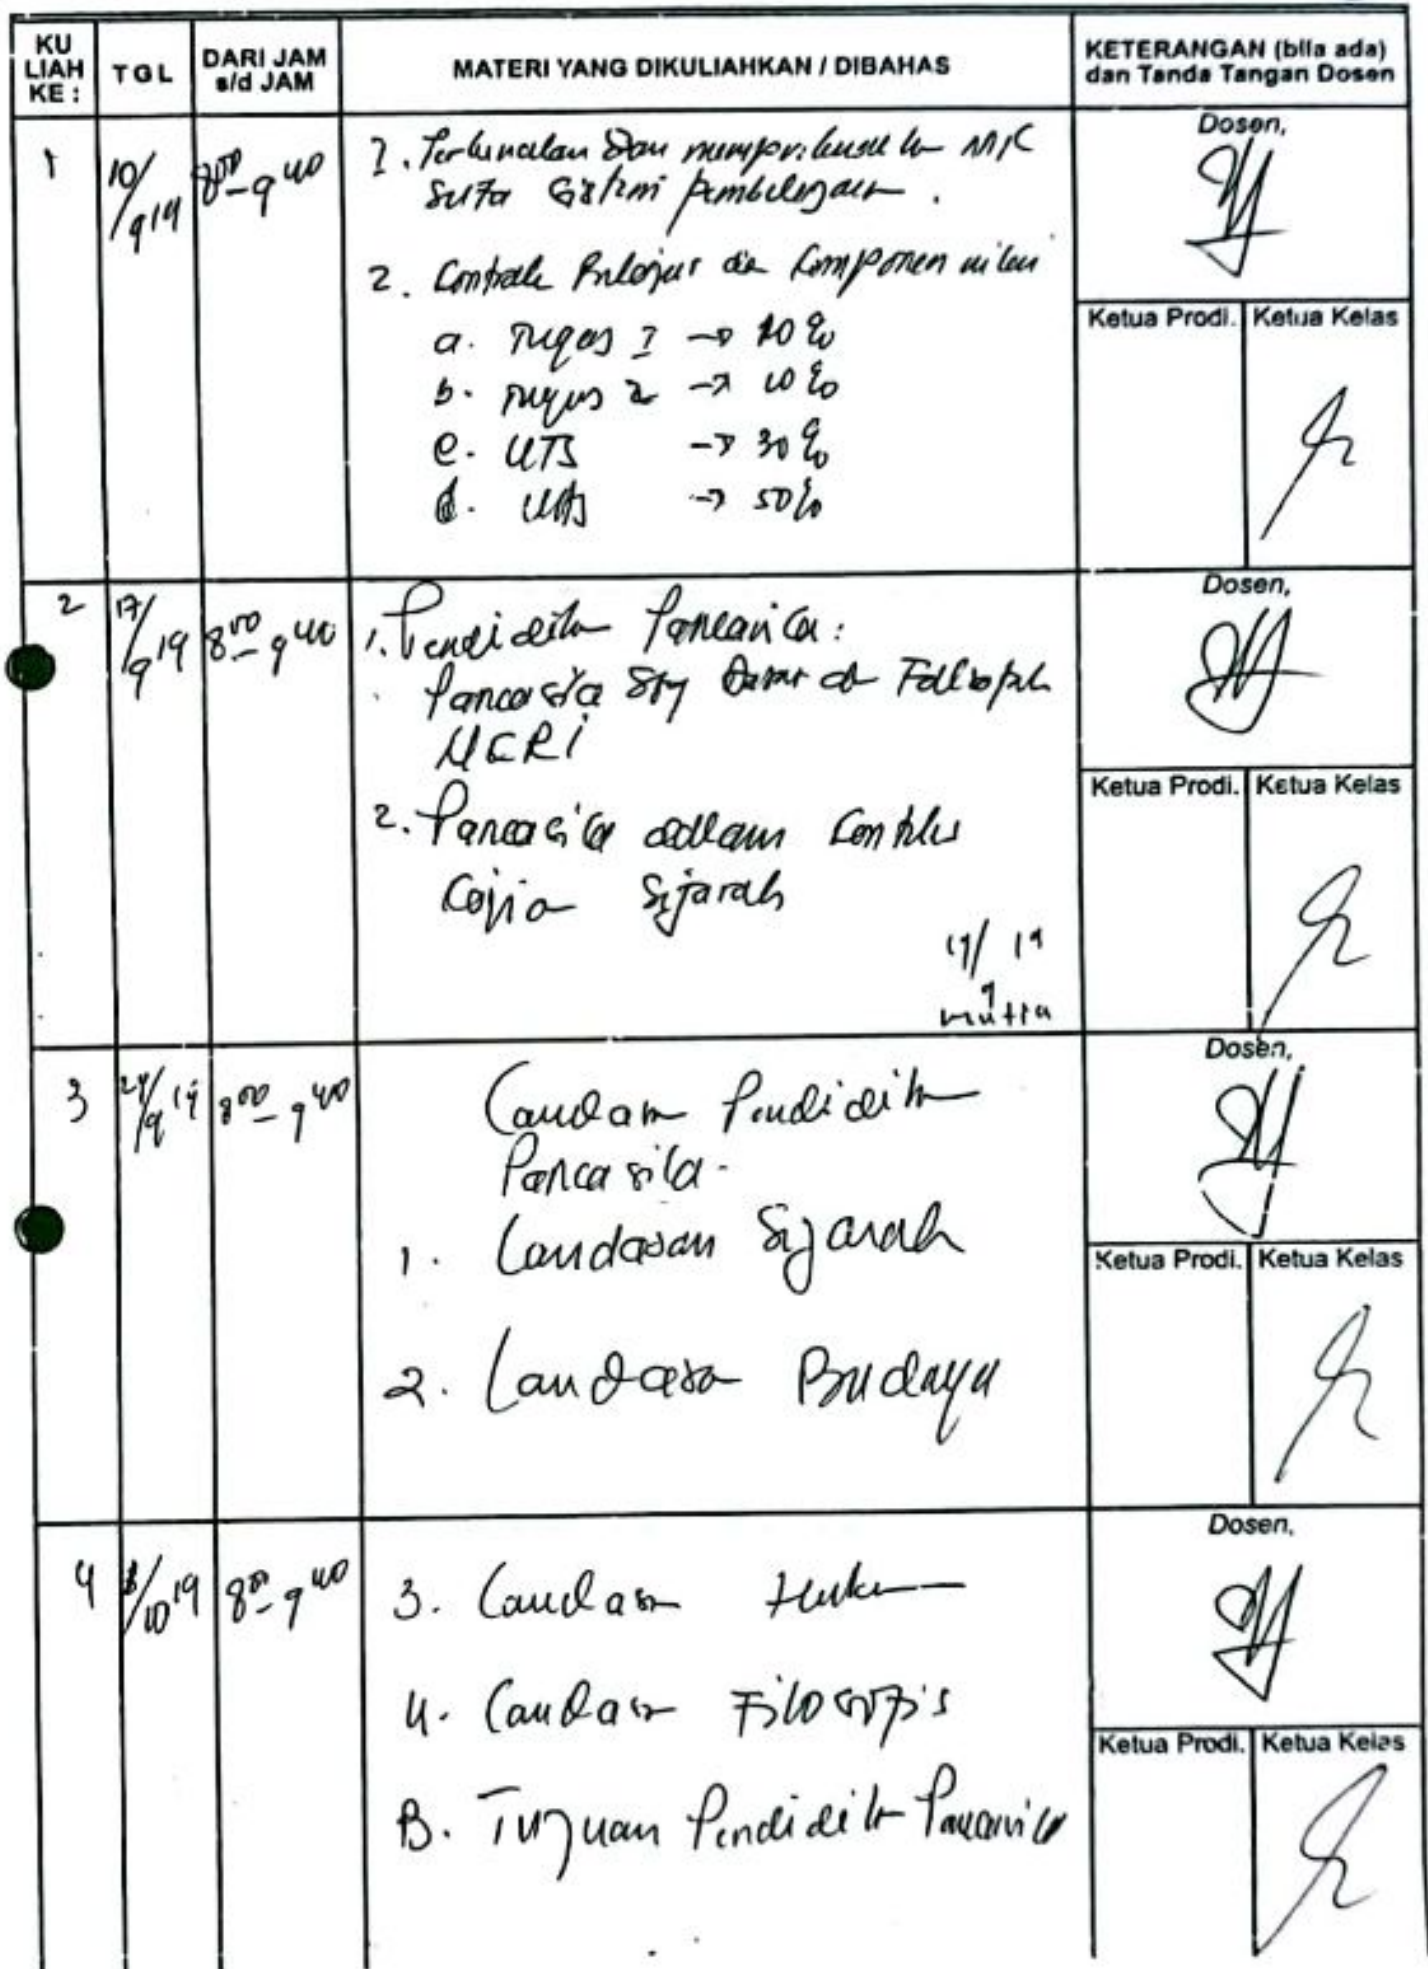 KU
LIAH
KE :
TGL
DARI JAM
s/d JAM
MATERI YANG DIKULIAHKAN / DIBAHAS
KETERANGAN (bila ada)
dan Tanda Tangan Dosen
1
10/9 19
8⁰⁰ - 9⁴⁰
1. Perkenalan dan
sistem
2. komponen nilai
a. Tugas 1 → 10%
b. Tugas 2 → 10%
c. UTS → 30%
d. UAS → 50%
Dosen,
Ketua Prodi.
Ketua Kelas
2
17/9 19
8⁰⁰ - 9⁴⁰
1. Pendidikan Pancasila:
Pancasila sbg Dasar dan
NKRI
2. Pancasila dalam konteks
Sejarah
19/9 19
Dosen,
Ketua Prodi.
Ketua Kelas
3
24/9 19
8⁰⁰ - 9⁴⁰
Landasan Pendidikan
Pancasila.
1. Landasan Sejarah
2. Landasan Budaya
Dosen,
Ketua Prodi.
Ketua Kelas
4
/10 19
8⁰⁰ - 9⁴⁰
3. Landasan Hukum
4. Landasan Filosofis
B. Tujuan Pendidikan Pancasila
Dosen,
Ketua Prodi.
Ketua Kelas